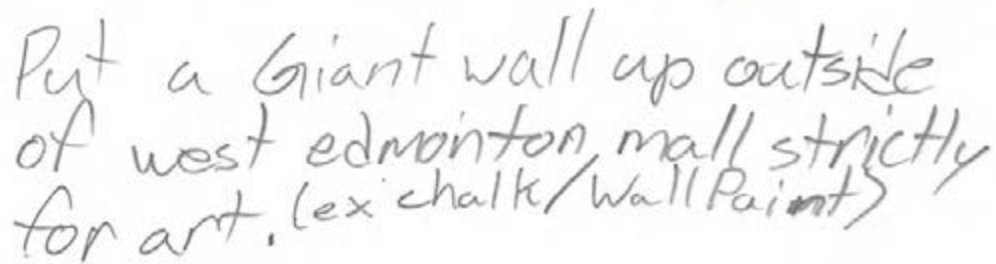 Put a Giant wall up outside
of west edmointon mall strictly
for art. (ex chalk/Wall Paint)